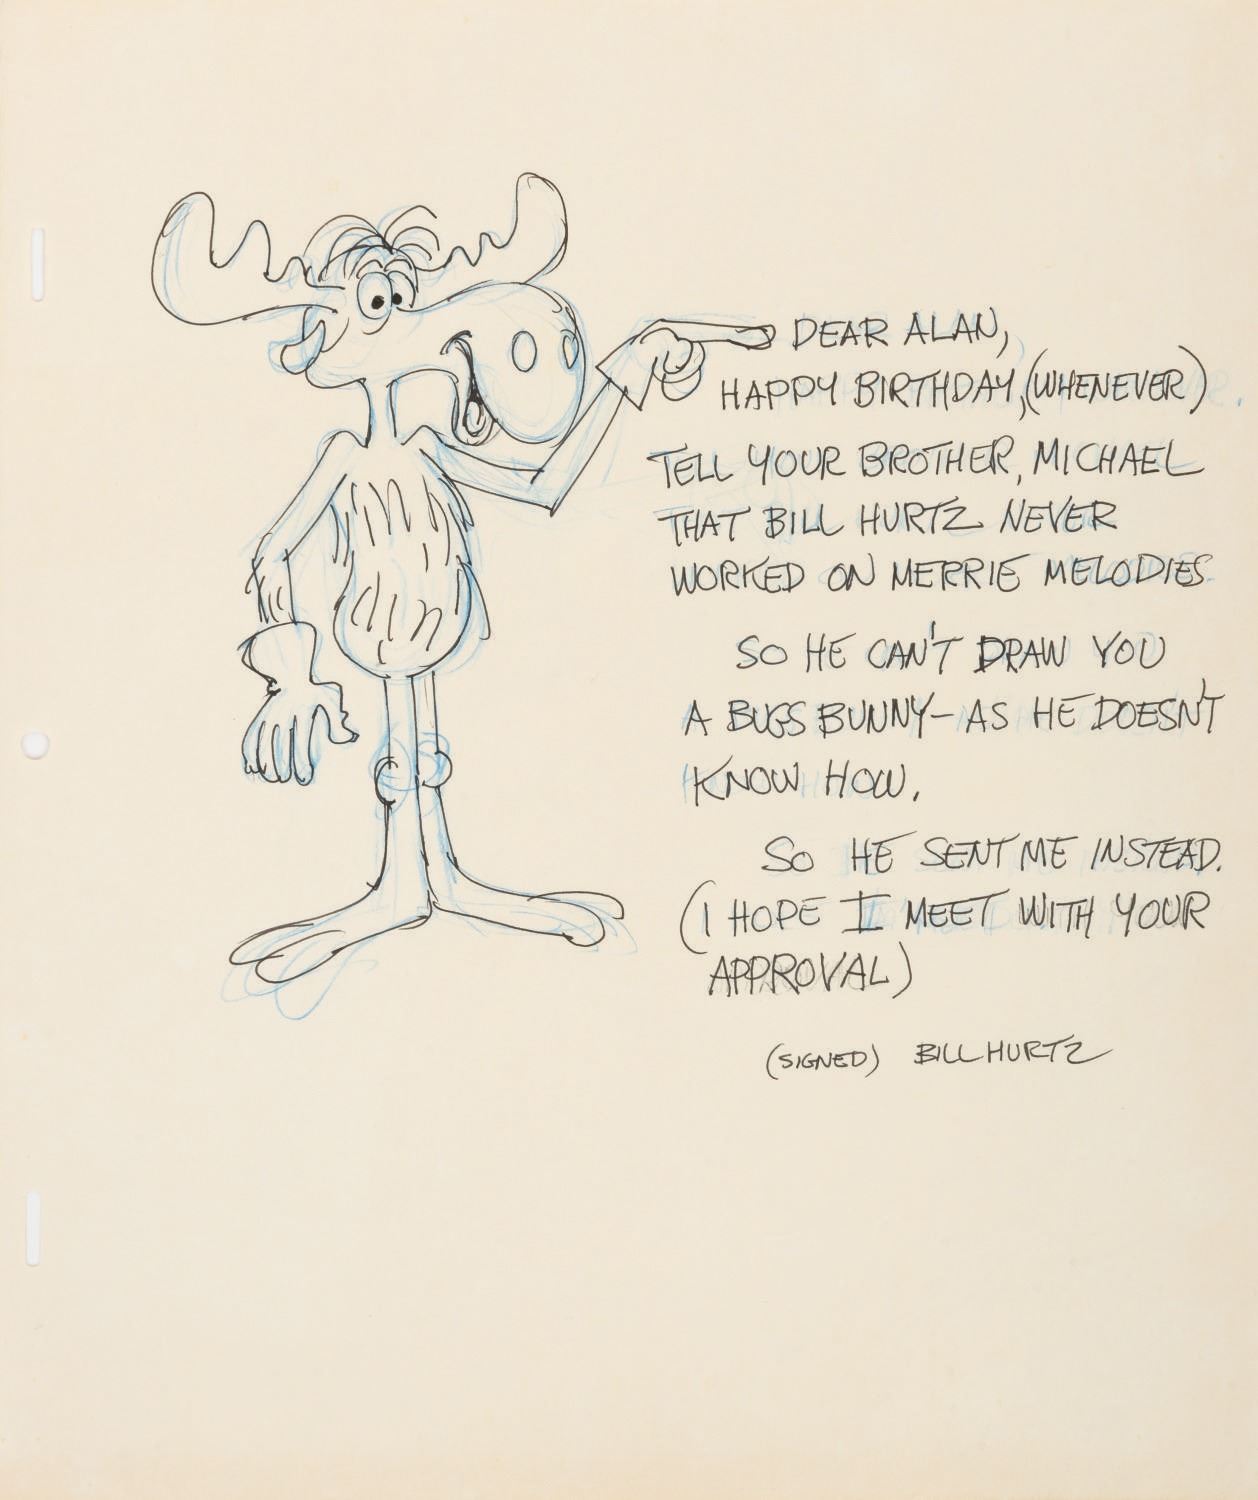 DEAR ALAN,
HAPPY BIRTHDAY, (WHENEVER)
TELL YOUR BROTHER, MICHAEL
THAT BILL HURTZ NEVER
WORKED ON MERRIE MELODIES
SO HE CAN'T DRAW YOU
A BUGS BUNNY - AS HE DOESN'T
KNOW HOW.
SO HE SENT ME INSTEAD.
(I HOPE I MEET WITH YOUR
APPROVAL)
(SIGNED) BILL HURTZ